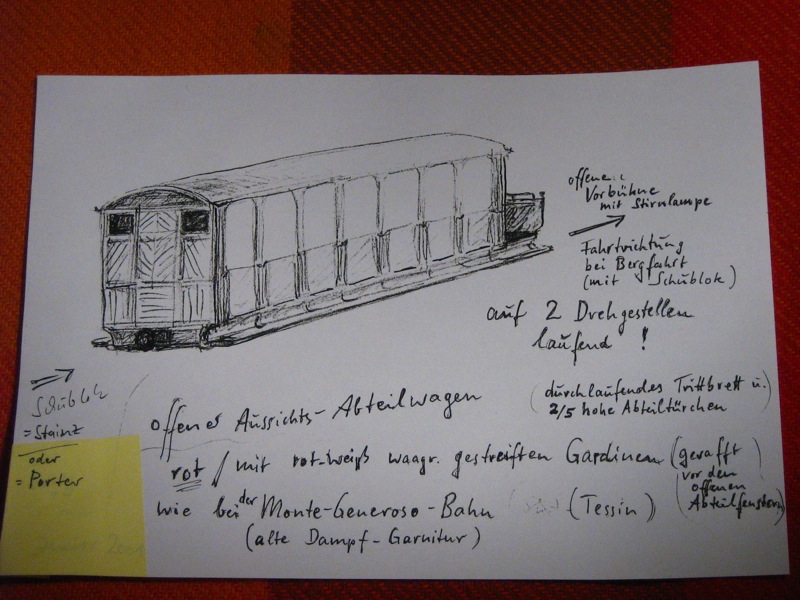 offene
Vorbühne
mit Stirnlampe
Fahrtrichtung
bei Bergfahrt
(mit Schublok)
auf 2 Drehgestellen
laufend !
Schublok
= Stainz
oder
= Porter
offener Aussichts-Abteilwagen
(durchlaufendes Trittbrett u.
2/5 hohe Abteiltürchen)
rot / mit rot-weiß waagr. gestreiften Gardinen (gerafft
vor den
offenen
Abteilfenstern)
wie bei der Monte-Generoso-Bahn (Tessin)
(alte Dampf-Garnitur)